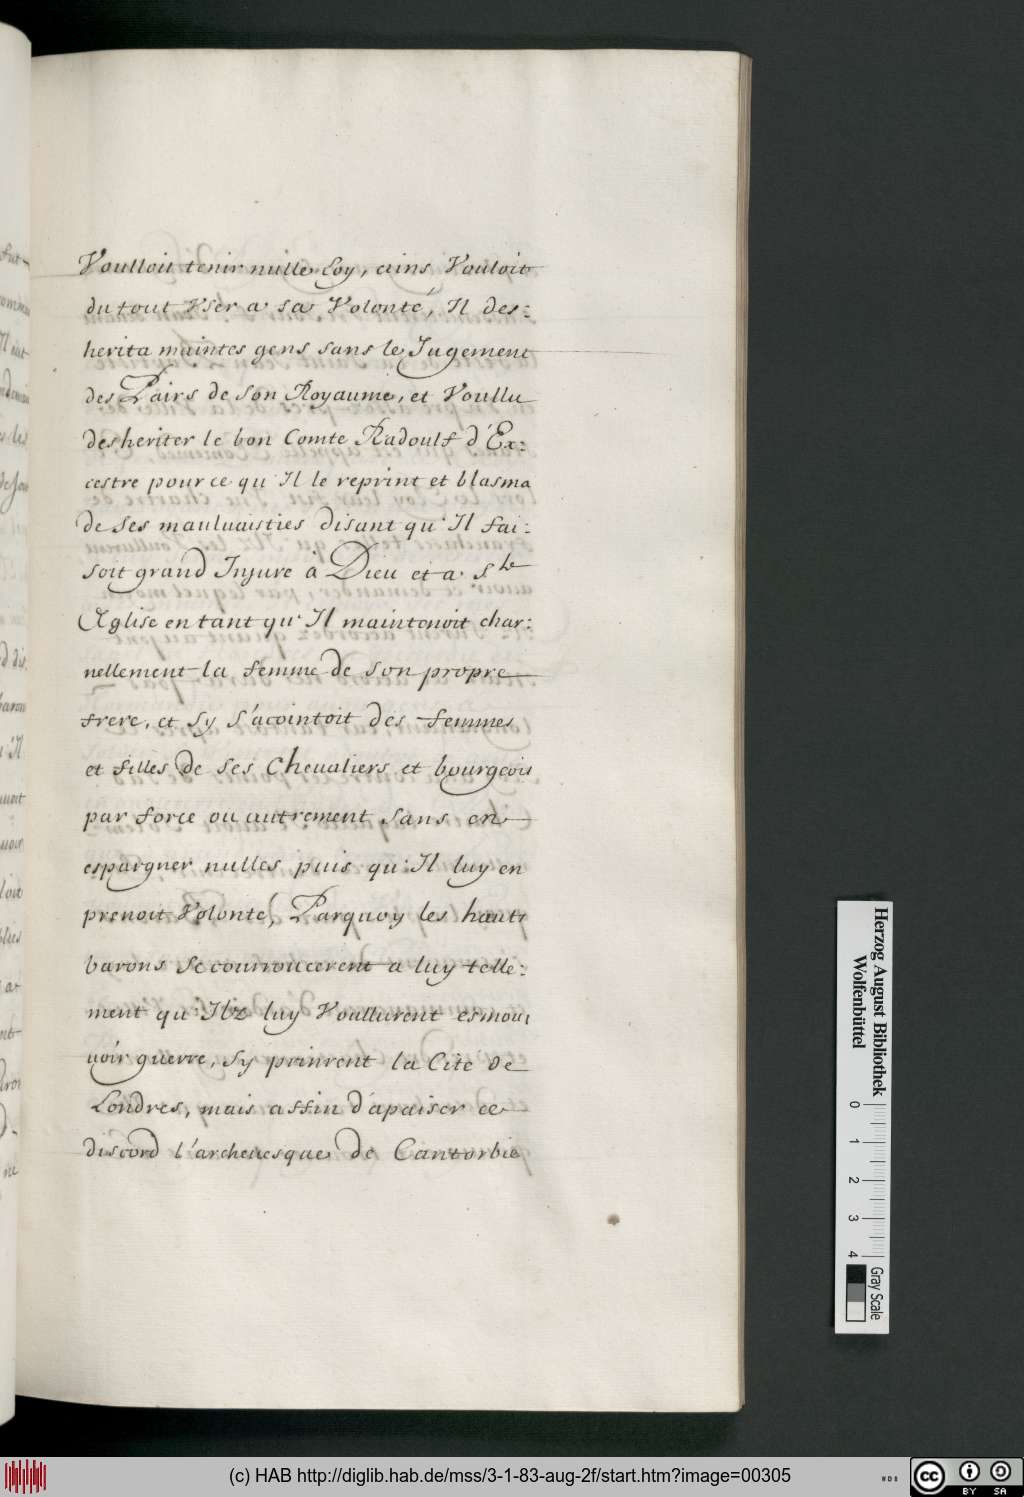 Voulloit tenir nulle Loy, ains Vouloit
du tout Vser a sa Volonté, Il des:
herita maintes gens sans le Jugement
des Pairs de son Royaume, et Voullu
desheriter le bon Comte Radoulf d'Ex:
cestre pour ce qu'Il le reprint et blasma
de ses mauluaisties disant qu'Il fai:
soit grand Injure à Dieu et a Ste
Æglise en tant qu'Il maintenoit char:
nellement la femme de son propre
frere, et sy s'acointoit des femmes
et filles de ses Cheualiers et bourgeois
par force ou autrement sans en
espargner nulles puis qu'Il luy en
prenoit Volonte, Parquoy les hauts
barons se courroucerent a luy telle:
ment qu'Ilz luy Voullurent esmou
uoir guerre, sy prinrent la Cité de
Londres, mais affin d'apaiser ce
discord l'archeuesque de Cantorbie
Herzog August Bibliothek
Wolfenbüttel
0 1 2 3 4
Gray Scale
(c) HAB http://diglib.hab.de/mss/3-1-83-aug-2f/start.htm?image=00305
cc BY SA